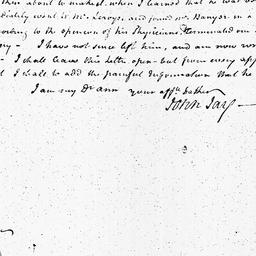 then about to make. when I learned that he was
diately went to Mr. Leroys, and joined Mr. Banyer in a
cording to the opinion of his Physicians, terminated
I have not since left him, and am now
I shall leave this letter open - but from every app
I shall to add the painful Information that he
I am my Dr Ann your affte father
John Jay —